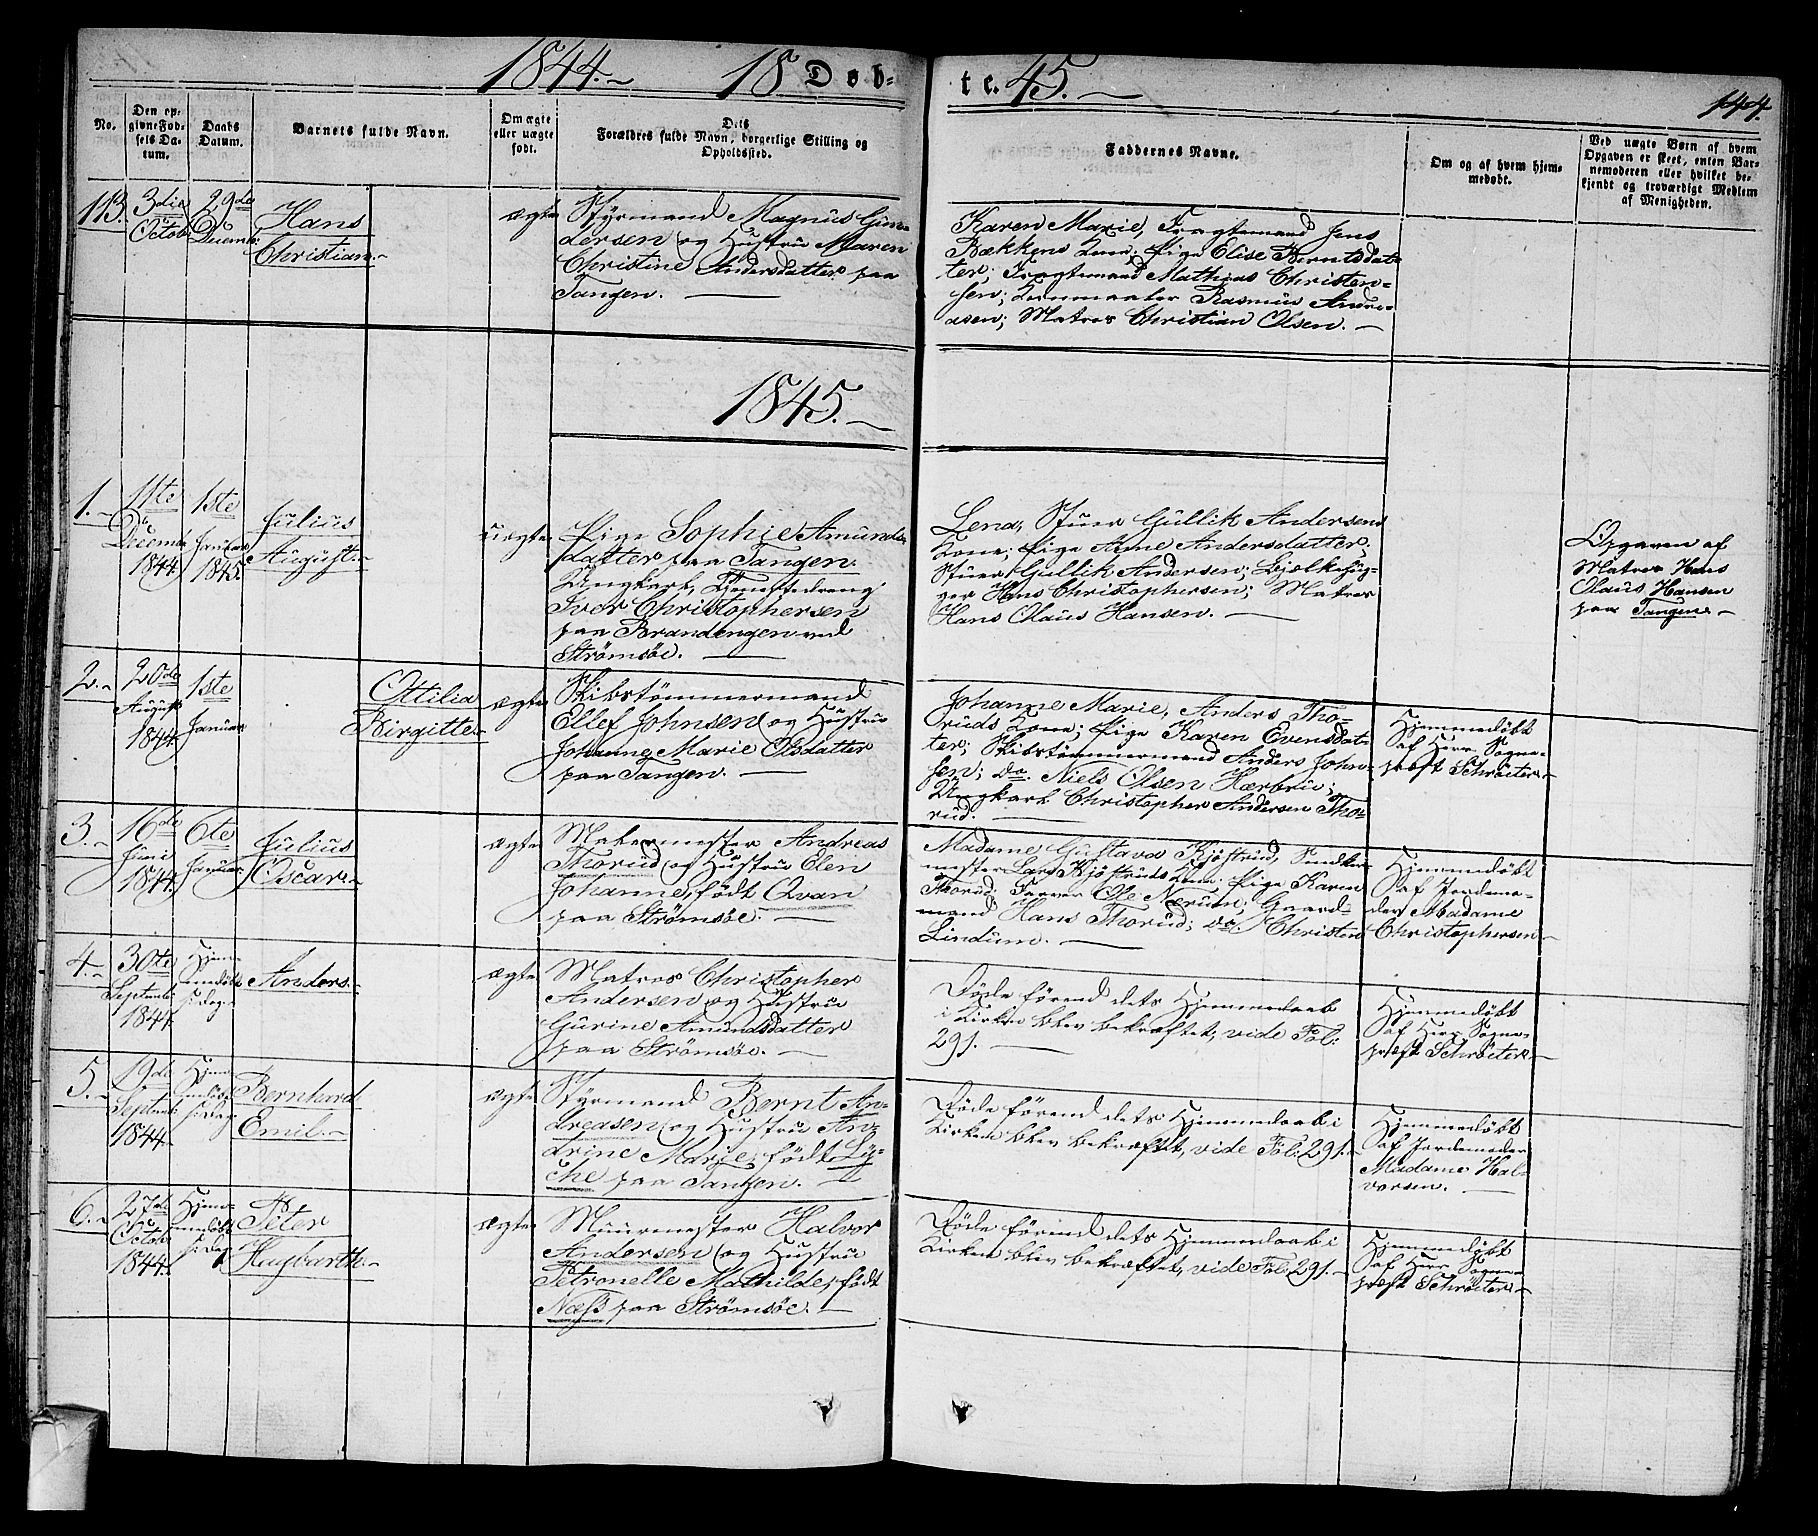 1844. 18 Døb-
te. 45.
144.
No.
Den op-
givne Fød-
sels Da-
tum.
Daabs
Datum.
Barnets fulde Navn.
Om ægte
eller uægte
født.
Dets
Forældres fulde Navn, borgerlige Stilling og
Opholdssted.
Faddernes Navne.
Om og af hvem hjem-
medøbt.
Ved uægte Børn af hvem
Opgaven er skeet, enten Bar-
nemoderen eller hvilket be-
kjendt og troværdigt Medlem
af Menigheden.
113.
3die
Octob:
29de
Decemb:
Hans
Christian.
ægte
Styrmand Magnus Gun-
dersen og Hustru Maren
Christine Andersdatter paa
Tangen.
Karen Marie, Fragtemand Jens
Bækkens Kone; Pige Elise Berntsdat-
ter; Fragtemand Mathias Christen-
sen; Kornmaaler Rasmus Andre-
asen; Matros Christian Olsen.
1845.
1.
11te
Decemb:
1844.
1ste
Januar
1845.
Julius
August.
uægte
Pige Sophie Amunds-
datter paa Tangen.
Ungkarl, Tjenestedreng
Iver Christophersen
paa Brandengen ved
Strømsöe.
Lena, Stuer Gullik Andersens
Kone; Pige Anne Andersdatter;
Stuer Gullik Andersen; Bjelkehug-
ger Hans Christophersen; Matros
Hans Olaus Hansen.
Opgaven af
Matros Hans
Olaus Hansen
paa Tangen.
2.
20de
August
1844.
1ste
Januar
Ottilia
Birgitte.
ægte
Skibstömmermand
Ellef Johnsen og Hustru
Johanne Marie Olsdatter
paa Tangen.
Johanne Marie, Anders Tho-
ruds Kone; Pige Karen Evensdat-
ter; Skibstömmermand Anders John-
sen; do. Niels Olsen Hærbrü;
Ungkarl Christopher Andersen Tho-
rud.
Hjemmedöbt
af Herr Sogne-
præst Schröeter.
3.
16de
Juni
1844.
6te
Januar
Julius
Oscar.
ægte
Malermester Andreas
Thorud og Hustru Elen
Johanne, født Qvan
paa Strömsöe.
Madame Gustava Kjöstrud,
mester Lars Kjöstruds Kone; Pige Karen
Thorud; Farver Ole Nærum; Gaard-
mand Hans Thorud; do. Christen
Lindum.
Hjemmedöbt
af Jordemo-
der Madame
Christophersen
4.
30te
Septemb:
1844.
Hjem-
medöbt
s: Dag.
Anders.
ægte
Matros Christopher
Andersen og Hustru
Gurine Amundsdatter
paa Strömsöe.
Döde förend dets Hjemmedaab
i Kirken blev bekræftet, vide Fol:
291.
Hjemmedöbt
af Herr Sogne-
præst Schröeter.
5.
19de
Septemb:
1844.
Hjem-
medöbt
s: Dag
Bernhard
Emil.
ægte
Styrmand Bernt An-
dreasen og Hustru An-
drine Marie, født Ly-
che paa Tangen.
Döde förend dets Hjemmedaab i
Kirken blev bekræftet, vide Fol: 291.
Hjemmedöbt
af Jordemoder
Madame Hal-
vorsen.
6.
27de
Octob:
1844.
Hjem-
medöbt
s: Dag
Peter
Hagbarth.
ægte
Muurmester Halvor
Andersen og Hustru
Petronelle Mathilde, født
Næss paa Strömsöe.
Döde förend dets Hjemmedaab i
Kirken blev bekræftet, vide Fol: 291.
Hjemmedöbt
af Herr Sogne-
præst Schröeter.